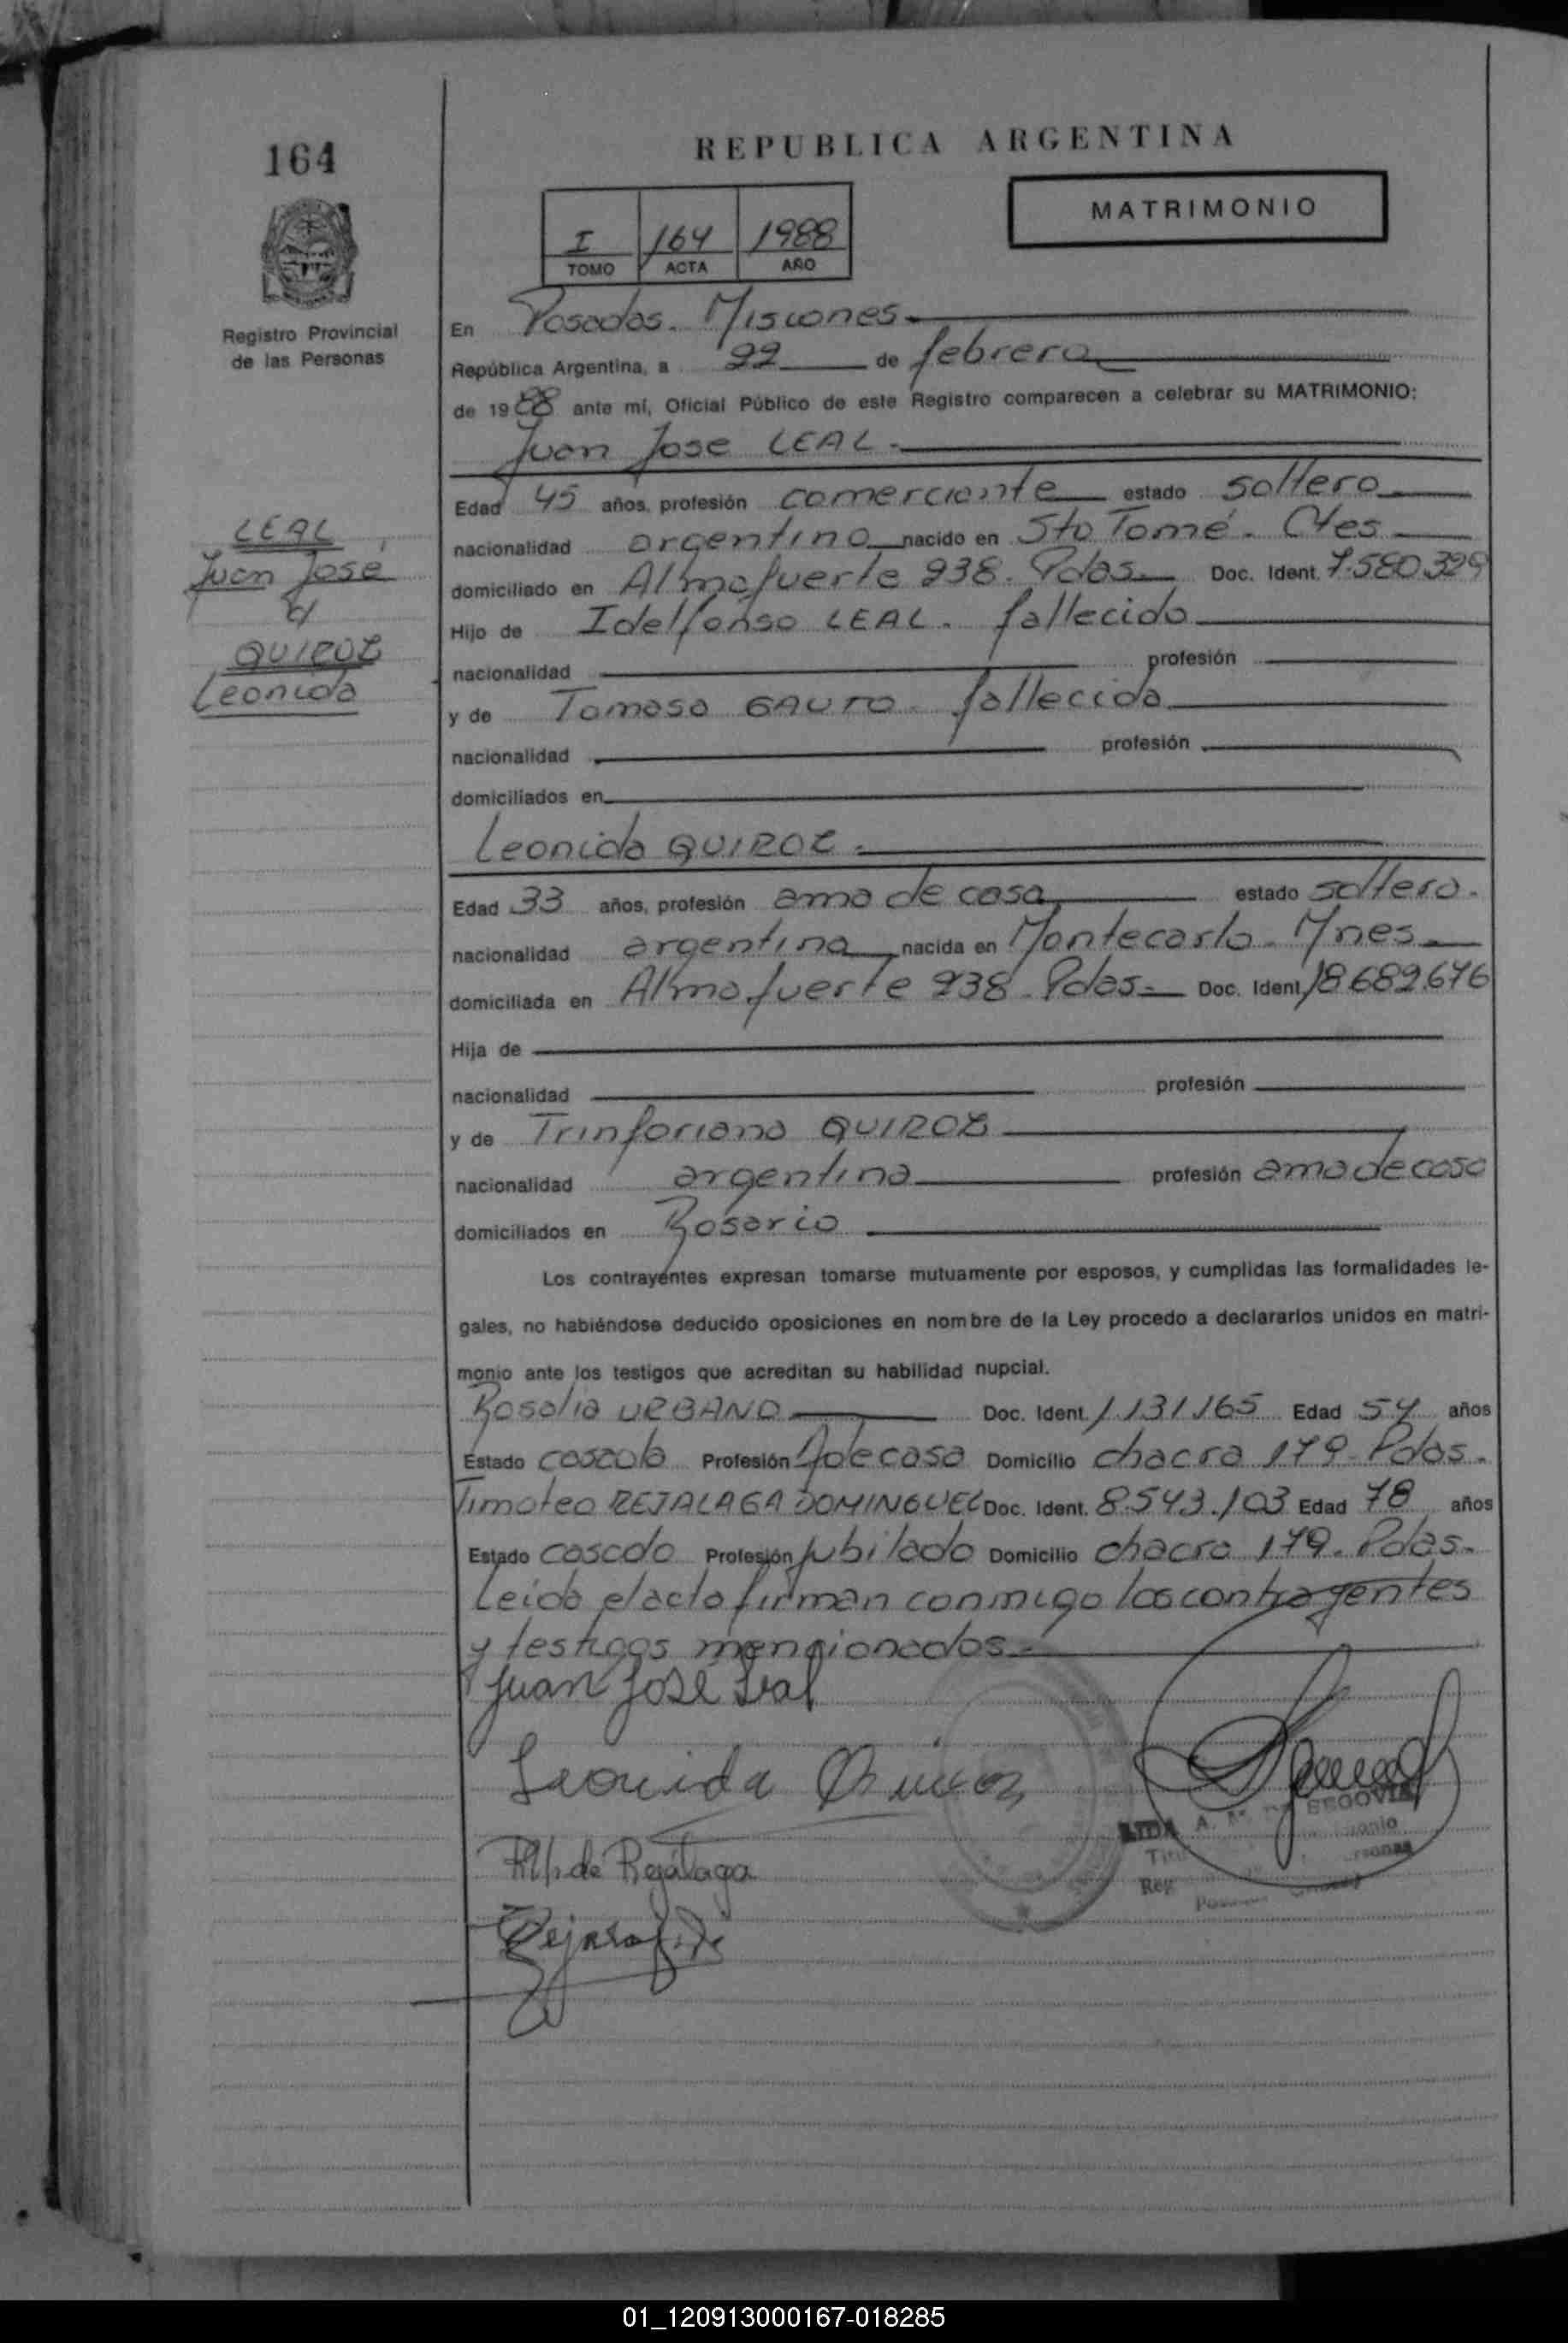 164
REPUBLICA ARGENTINA
MATRIMONIO
I 164 1988
TOMO ACTA AÑO
Registro Provincial
de las Personas
En Posadas. Misiones
República Argentina, a 22 de febrero
de 1988 ante mí, Oficial Público de este Registro comparecen a celebrar su MATRIMONIO:
Juan Jose LEAL.
Edad 45 años, profesión comerciante estado soltero
nacionalidad argentino nacido en Sto Tomé. Ctes
domiciliado en Almafuerte 938. Pdas. Doc. Ident. 7.580.329
Hijo de Idelfonso LEAL. fallecido
nacionalidad profesión
y de Tomasa GAUTO. fallecida
nacionalidad profesión
domiciliados en
LEAL
Juan José
c/
QUIROZ
Leonida
Leonida QUIROZ.
Edad 33 años, profesión ama de casa estado soltera.
nacionalidad argentina nacida en Montecarlo. Mnes.
domiciliada en Almafuerte 938. Pdas. Doc. Ident. 18.689.676
Hija de
nacionalidad profesión
y de Trinforiana QUIROZ
nacionalidad argentina profesión ama de casa
domiciliados en Rosario
Los contrayentes expresan tomarse mutuamente por esposos, y cumplidas las formalidades le-
gales, no habiéndose deducido oposiciones en nombre de la Ley procedo a declararlos unidos en matri-
monio ante los testigos que acreditan su habilidad nupcial.
Rosalia URBANO Doc. Ident. 1.131.165 Edad 54 años
Estado casada Profesión A de casa Domicilio chacra 179. Pdas.
Timoteo REJALAGA DOMINGUEZ Doc. Ident. 8.543.103 Edad 78 años
Estado casado Profesión jubilado Domicilio chacra 179. Pdas.
Leida el acta firman conmigo los contrayentes
y testigos mencionados.
Juan José Leal
Leonida Quiroz
de Rejalaga
LIDA A. SEGOVIA
01_120913000167-018285